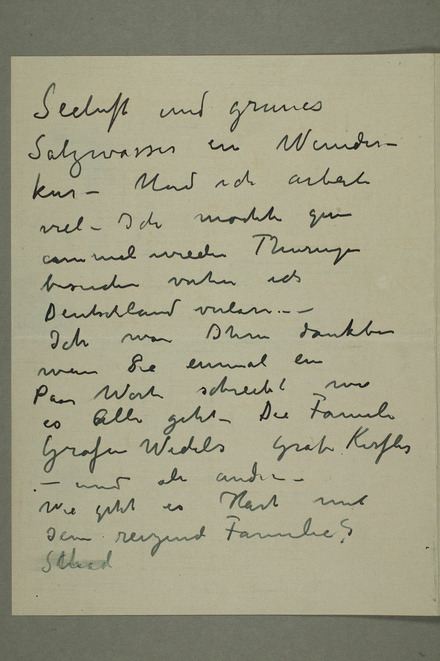 Seeluft und grünes
Salzwasser ein Wunder-
kur – Und ich arbeite
viel – Ich möchte gern
einmal wieder Thuringen
besuchen vorher ich
Deutschland verlasse – –
Ich war Ihnen dankbar
wenn Sie einmal ein
Paar Worte schreibt wie
es Alle geht – Die Familie
Grafen Wedels Graf Kessler
– und alle andere –
Wie geht es Hart und
sein reizend Familie?